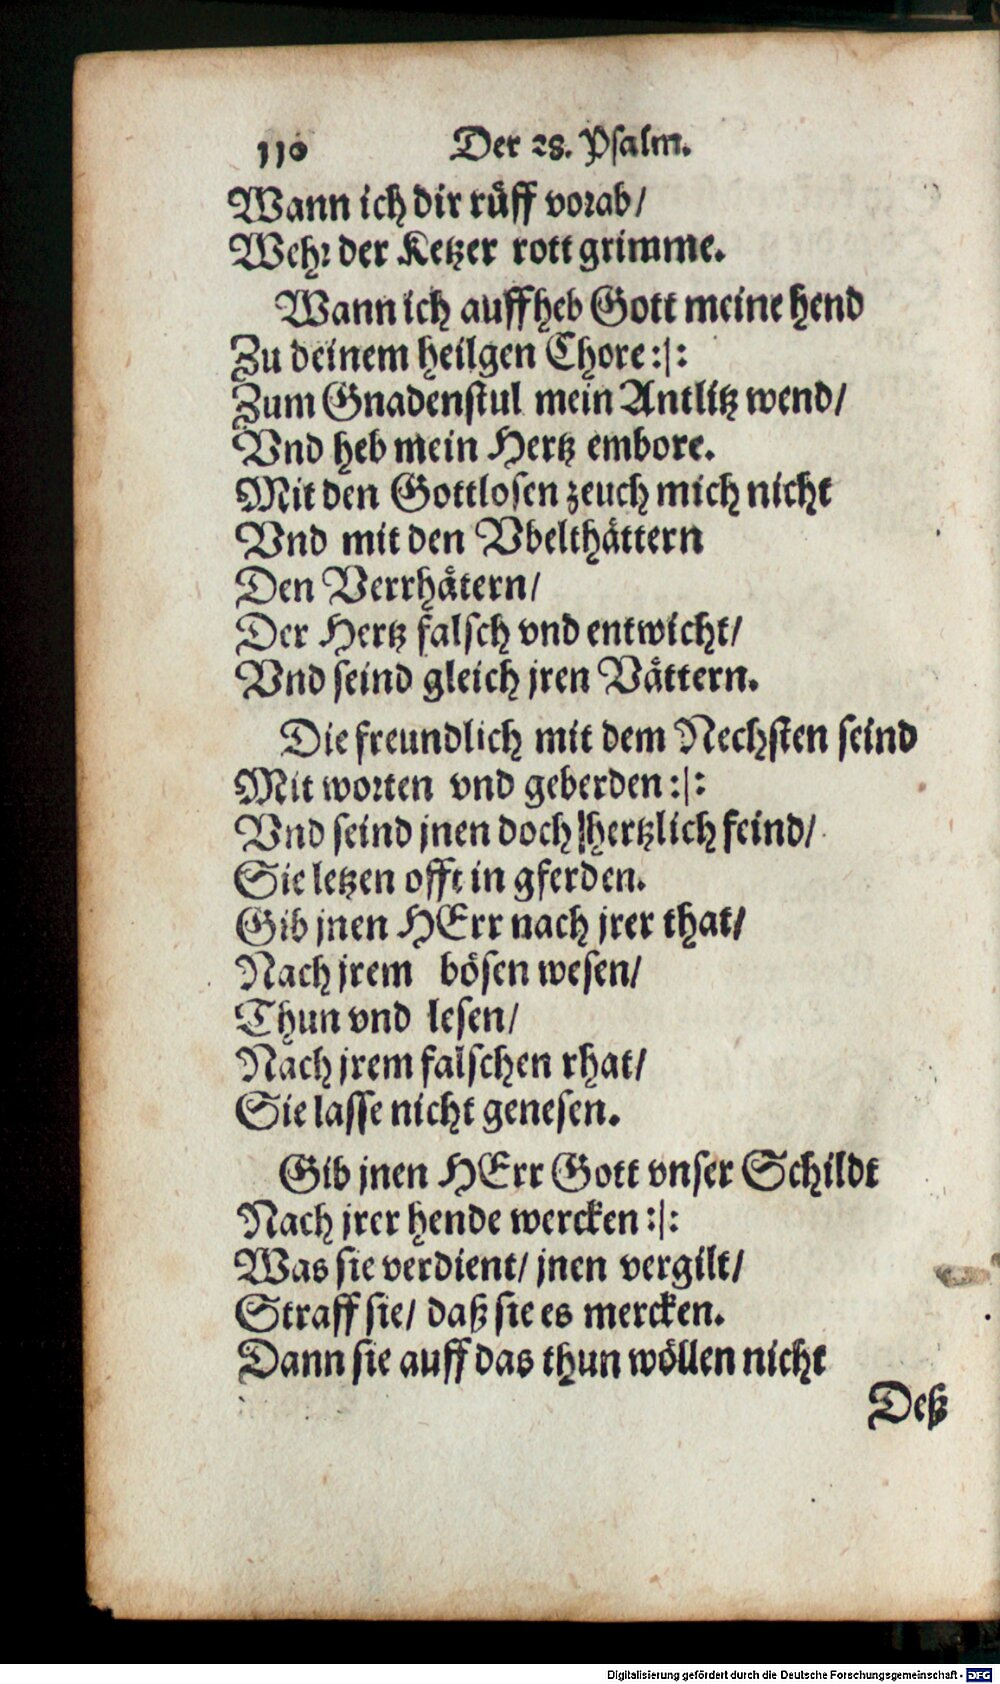 110 Der 28. Psalm.
Wann ich dir rüff vorab/
Wehr der Ketzer rott grimme.
Wann ich auffheb Gott meine hend
Zu deinem heilgen Chore:|:
Zum Gnadenstul mein Antlitz wend/
Vnd heb mein Hertz embore.
Mit den Gottlosen zeuch mich nicht
Vnd mit den Vbelthättern
Den Verrhätern/
Der Hertz falsch vnd entwicht/
Vnd seind gleich jren Vättern.
Die freundlich mit dem Nechsten seind
Mit worten vnd geberden:|:
Vnd seind jnen doch hertzlich feind/
Sie letzen offt in gferden.
Gib jnen HErr nach jrer that/
Nach jrem bösen wesen/
Thun vnd lesen/
Nach jrem falschen rhat/
Sie lasse nicht genesen.
Gib jnen HErr Gott vnser Schildt
Nach jrer hende wercken:|:
Was sie verdient/ jnen vergilt/
Straff sie/ daß sie es mercken.
Dann sie auff das thun wöllen nicht
Deß
Digitalisierung gefördert durch die Deutsche Forschungsgemeinschaft - DFG